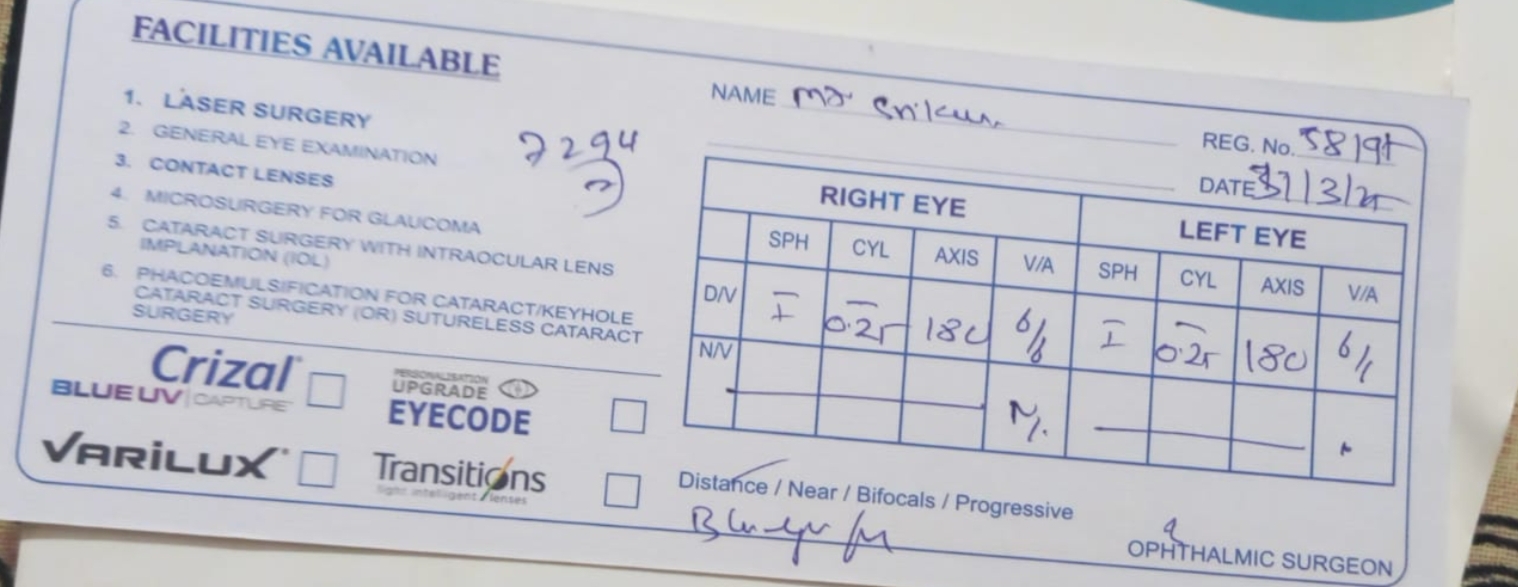 FACILITIES AVAILABLE
1. LASER SURGERY
2. GENERAL EYE EXAMINATION
3. CONTACT LENSES
4. MICROSURGERY FOR GLAUCOMA
5. CATARACT SURGERY WITH INTRAOCULAR LENS
IMPLANATION (IOL)
6. PHACOEMULSIFICATION FOR CATARACT/KEYHOLE
CATARACT SURGERY (OR) SUTURELESS CATARACT
SURGERY
7294
Crizal
BLUE UV | CAPTURE
PERSONALISATION
UPGRADE
EYECODE
VARILUX
Transitions
light intelligent lenses
NAME Mr
REG. No.
DATE
RIGHT EYE LEFT EYE
SPH CYL AXIS V/A SPH CYL AXIS V/A
D/V 0.25 180 6/6 0.25 180
N/V
Distance / Near / Bifocals / Progressive
OPHTHALMIC SURGEON